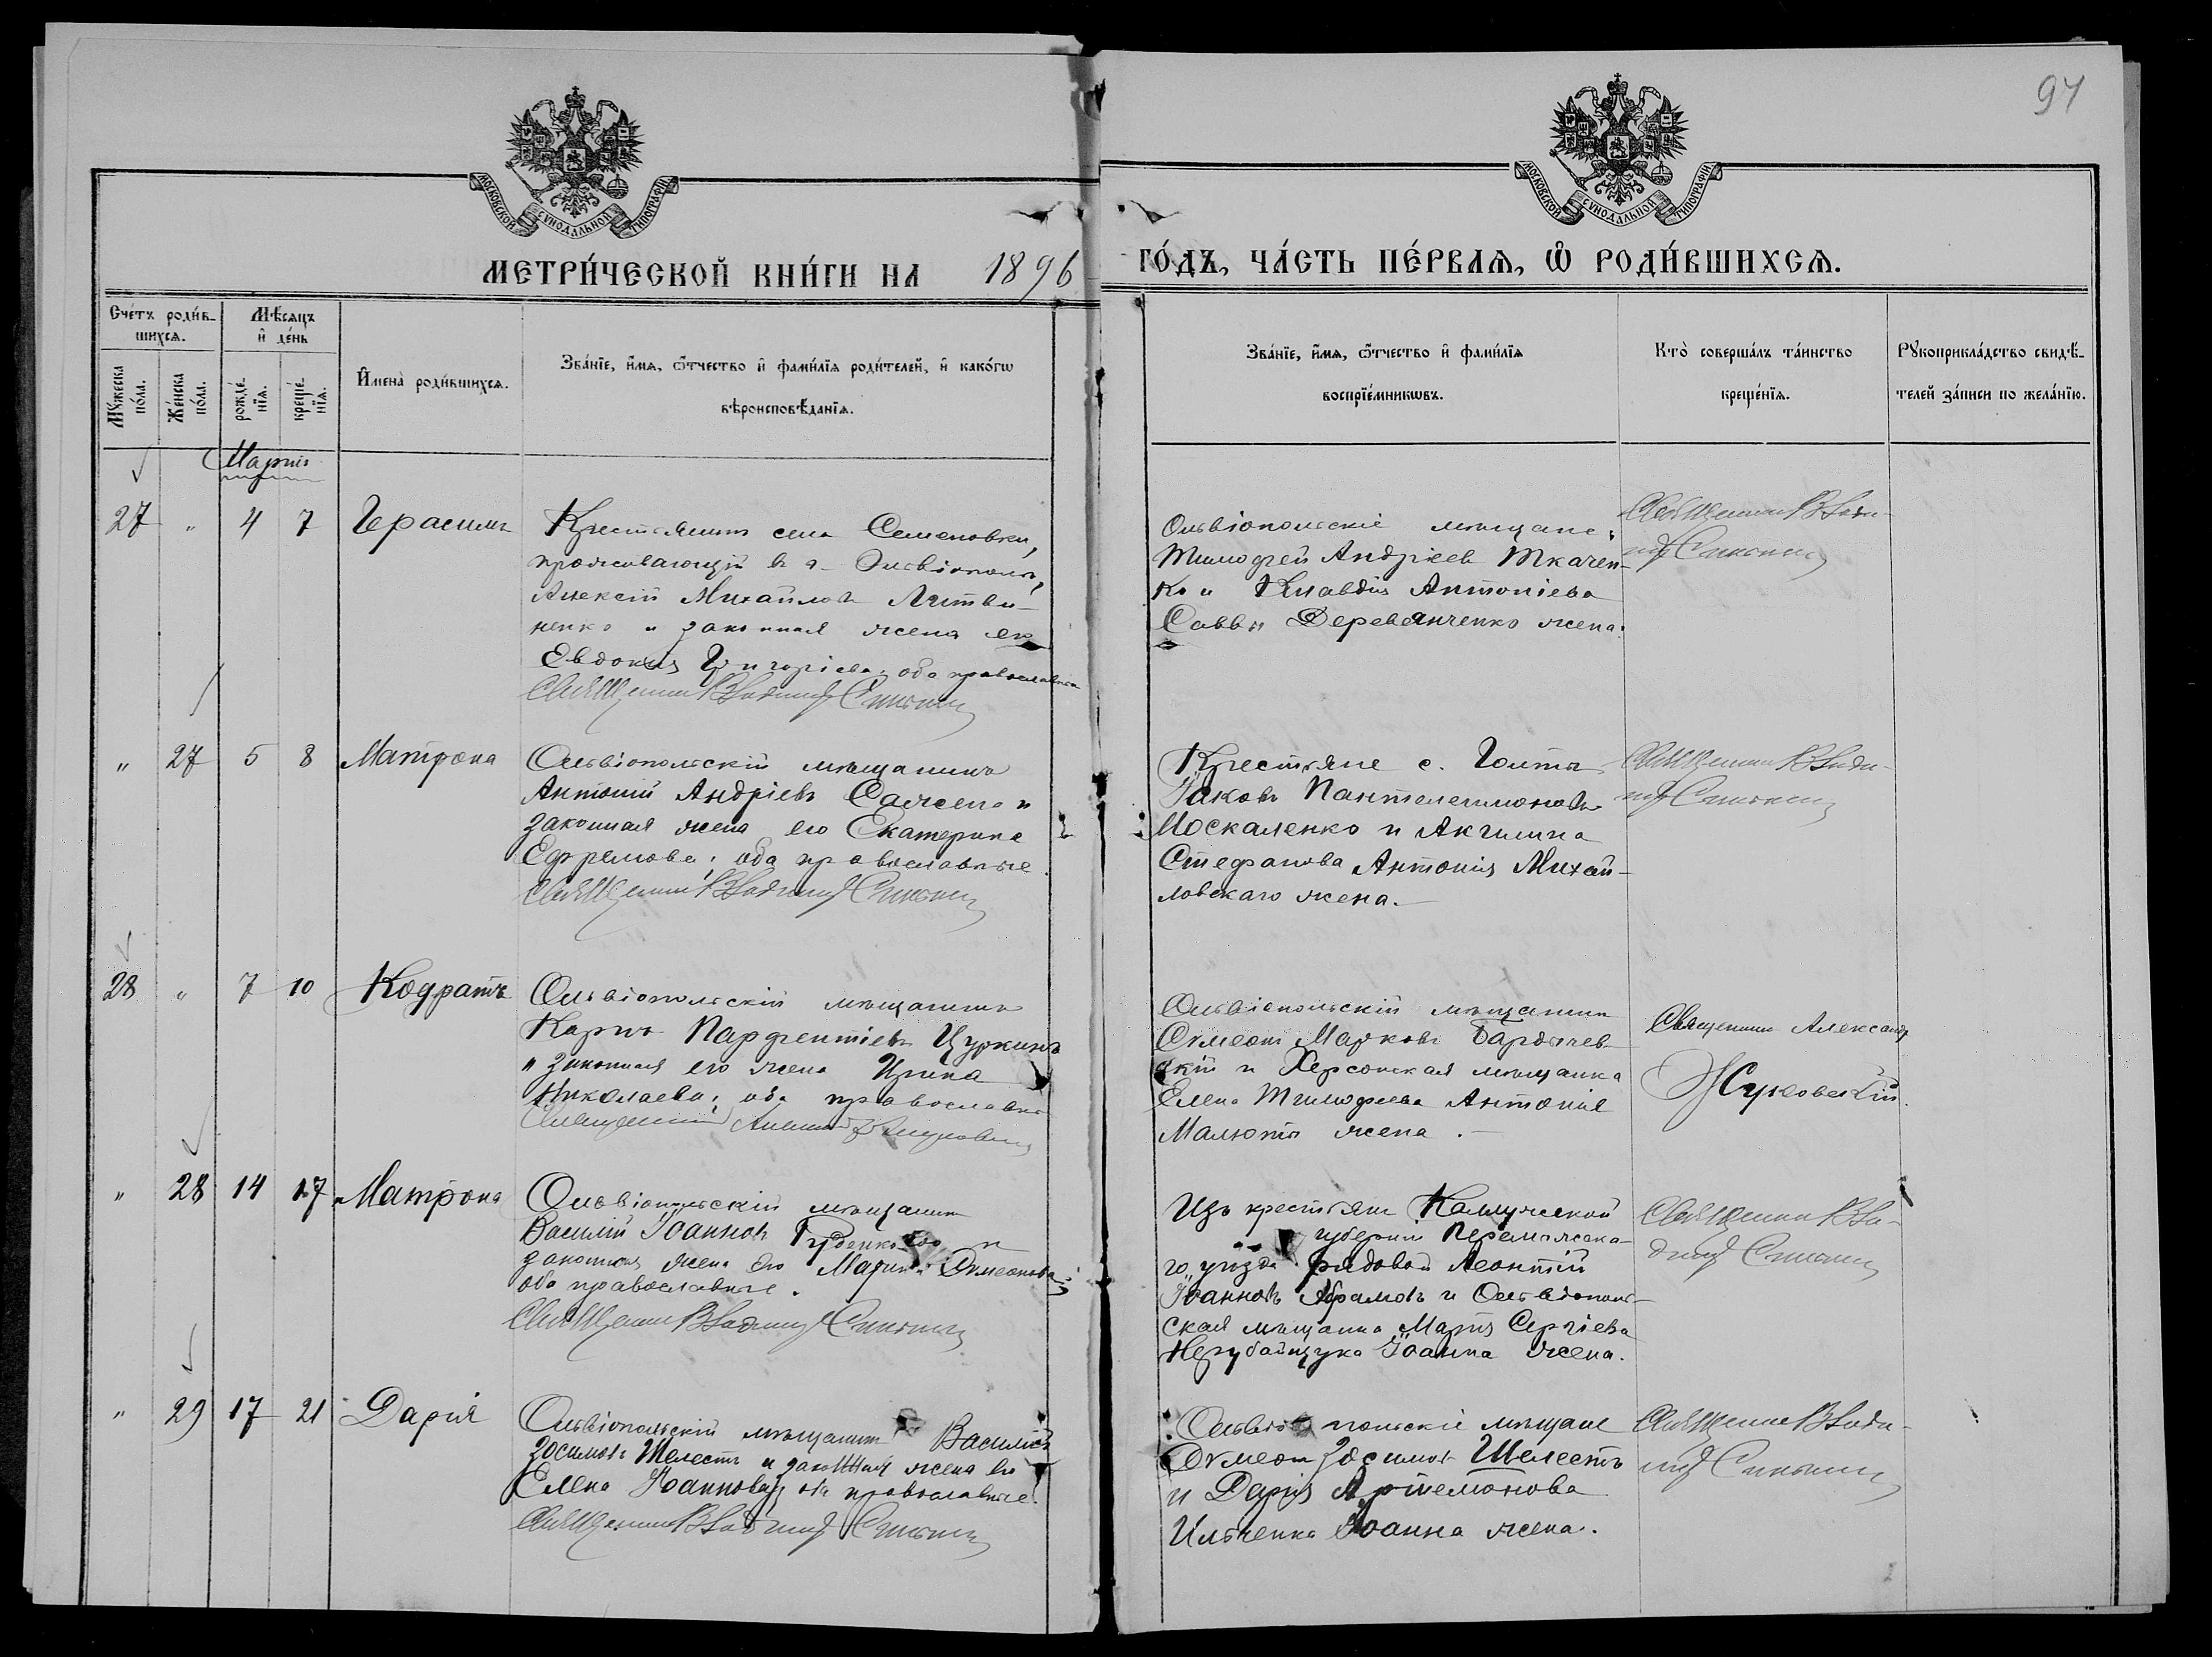 97
МОСКОВСКОЙ СУНОДАЛЬНОЙ ТИПОГРАФІИ
МОСКОВСКОЙ СУНОДАЛЬНОЙ ТИПОГРАФІИ
МЕТРИ́ЧЕСКОЙ КНИ́ГИ НА 1896
ГО́ДЪ, ЧА́СТЬ ПЕ́РВАѦ, Ѡ РОДИ́ВШИХСѦ.
Сче́тъ роди́в-
шихсѧ.
Мѣ́сѧцъ
и де́нь
Мꙋ́жеска
по́ла.
Же́нска
по́ла.
рожде́-
нїѧ.
креще́-
нїѧ.
Имена̀ роди́вшихсѧ.
Зва́нїе, и́мѧ, ѻ́тчество и фами́лїѧ роди́телей, и како́гѡ
вѣроисповѣ́данїѧ.
Зва́нїе, и́мѧ, ѻ́тчество и фами́лїѧ
воспрїе́мникѡвъ.
Кто̀ соверша́лъ та́инство
креще́нїѧ.
Рꙋкоприкла́дство свидѣ́-
телей за́писи по жела́нїю.
Мартъ
27 " 4 7 Герасимъ
Крестьянинъ села Семеновки,
проживающій въ г. Ольвіополѣ,
Алексій Михайловъ Литви-
ненко и законная жена его
Евдокія Григоріева, оба православные
Священникъ Владимір
Ольвіопольскіе мѣщане:
Тимофей Андріевъ Ткачен-
ко и Клавдія Антоніева
Саввы Деревянченко жена.
Священникъ Влади-
мір
" 27 5 8 Матрона
Ольвіопольскій мѣщанинъ
Антоній Андріевъ Сажена и
законная жена его Екатерина
Ефремова, оба православные.
Священникъ Владимір
Крестьяне с. Голты
Іаковъ Пантелеимоновъ
Москаленко и Акилина
Стефанова Антонія Михай-
ловскаго жена.—
Священникъ Влади-
мір
28 " 7 10 Кодратъ
Ольвіопольскій мѣщанинъ
Карпъ Парфентіевъ Цуркинъ
и законная его жена Ирина
Николаева, оба православны
Священникъ Александръ Жуковскій
Ольвіопольскій мѣщанинъ
Симеонъ Марковъ Бардычев-
скій и Херсонская мѣщанка
Елена Тимофеева Антонія
Малюты жена.—
Священникъ Александръ
Жуковскій.
" 28 14 17 Матрона
Ольвіопольскій мѣщанинъ
Василій Іоанновъ Руденко и
законная жена его Марія Симеонова,
оба православные.
Священникъ Владимір
Изъ крестьянъ Калужской
губерніи Перемышска-
го уѣзда рядовой Леонтій
Іоанновъ Абрамовъ и Ольвіополь-
ская мѣщанка Марія Сергіева
Нерубайщука Іоанна жена.
Священникъ Вла-
димір
" 29 17 21 Дарія
Ольвіопольскій мѣщанинъ Василій
Зосимовъ Шелестъ и законная жена его
Елена Іоаннова, оба православные.
Священникъ Владимір
Ольвіопольскіе мѣщане
Симеонъ Зосимовъ Шелестъ
и Дарія Артемонова
Ильченка Іоанна жена.
Священникъ Влади-
мір